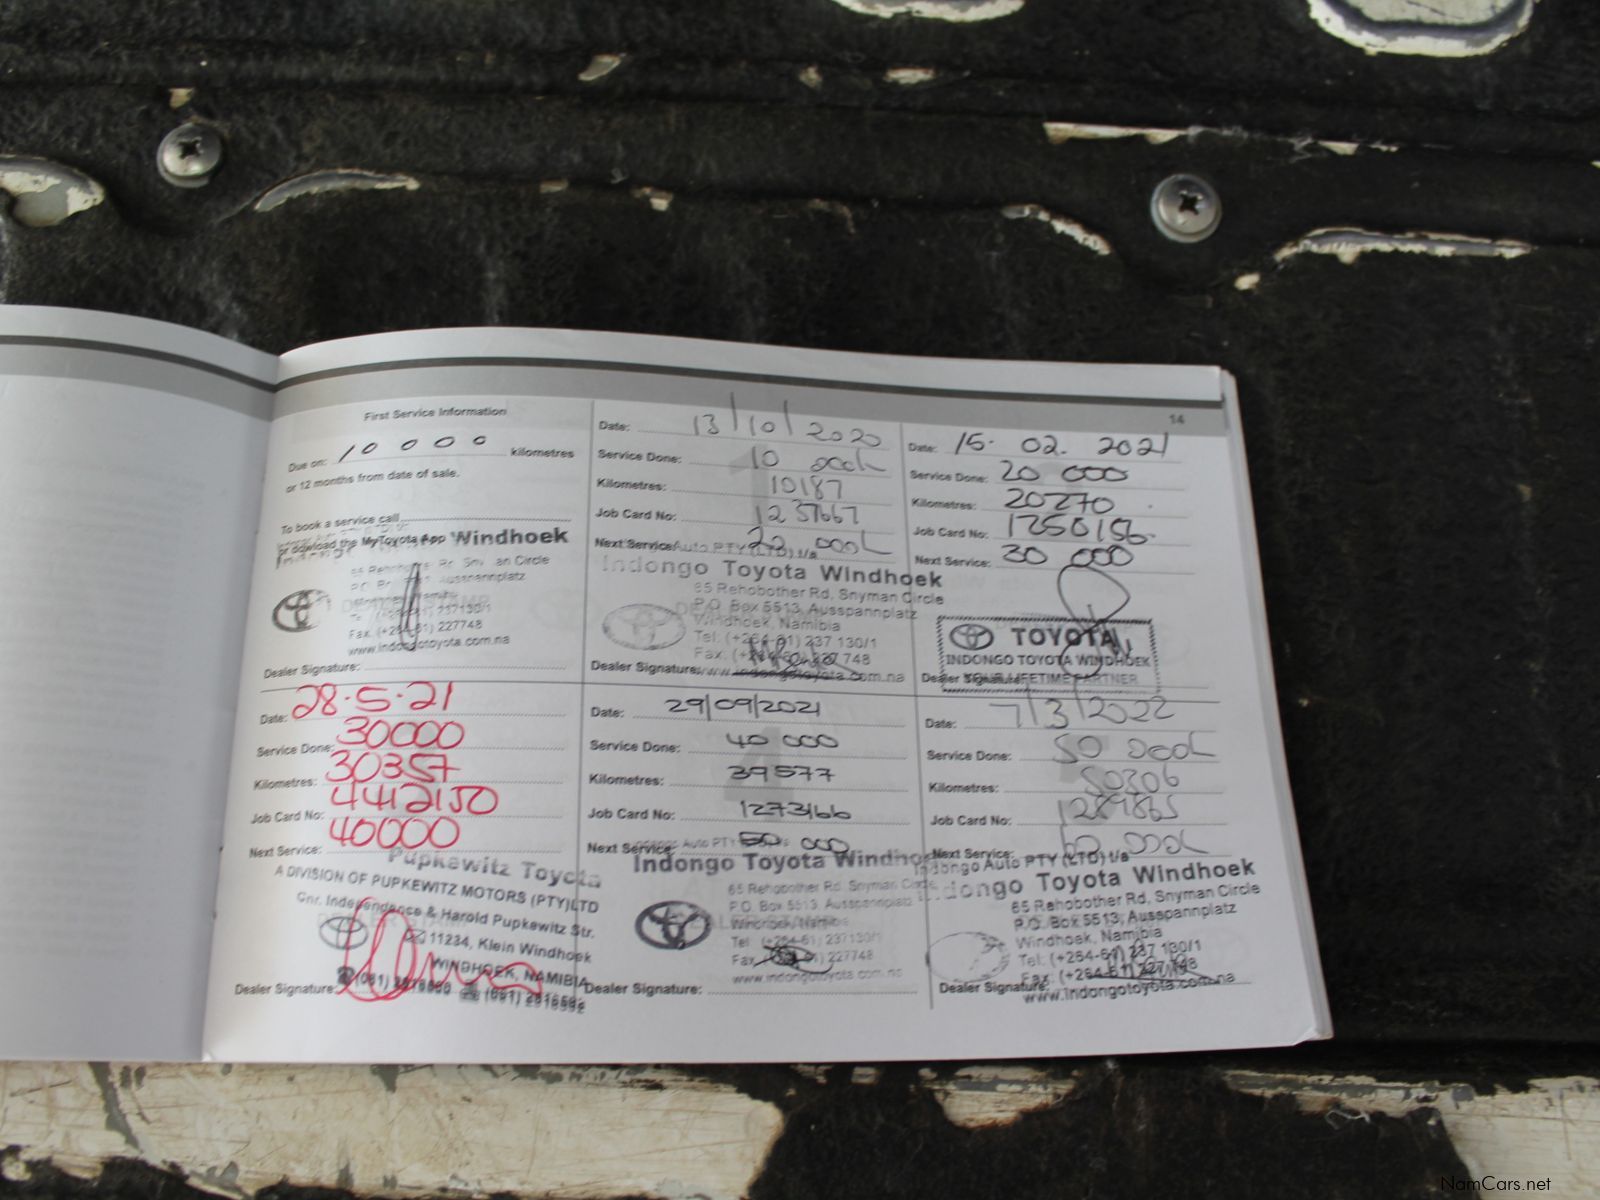 14
First Service Information
Due on: 10 000 kilometres
or 12 months from date of sale.
To book a service call
or dowload the MyToyota App Windhoek
P.O. Ausspannplatz
Fax: (+264-61) 227748
www.indongotoyota.com.na
Dealer Signature:
Date: 13/10/2020
Service Done: 10 000k
Kilometres: 10187
Job Card No:
Next Service:
Auto PTY (LTD) t/a
Indongo Toyota Windhoek
65 Rehobother Rd, Snyman Circle
P.O. Box 5513, Ausspannplatz
Windhoek, Namibia
Tel: (+264-61) 237 130/1
Fax: (+264-61) 227 748
Dealer Signature: www.indongotoyota.com.na
Date: 15. 02. 2021
Service Done: 20 000
Kilometres: 20270
Job Card No: 1250156
Next Service: 30 000
TOYOTA
INDONGO TOYOTA WINDHOEK
Dealer Signature: YOUR LIFETIME PARTNER
Date: 28.5.21
Service Done: 30000
Kilometres: 30357
Job Card No: 4412150
Next Service: 40000
Pupkewitz Toyota
A DIVISION OF PUPKEWITZ MOTORS (PTY)LTD
Cnr. Independence & Harold Pupkewitz Str.
11234, Klein Windhoek
WINDHOEK, NAMIBIA
Dealer Signature:
Date: 29/09/2021
Service Done: 40 000
Kilometres: 39577
Job Card No: 1273166
Next Service: 50 000
Indongo Toyota Windhoek
65 Rehobother Rd, Snyman Circle
P.O. Box 5513, Ausspannplatz
Windhoek, Namibia
Tel (+264-61) 237130/1
Fax (+264-61) 227748
www.indongotoyota.com.na
Dealer Signature:
Date: 7/3/2022
Service Done: 50 000k
Kilometres: 50306
Job Card No: 1289865
Next Service: 60 000k
Indongo Auto PTY (LTD) t/a
Indongo Toyota Windhoek
65 Rehobother Rd, Snyman Circle
P.O. Box 5513, Ausspannplatz
Windhoek, Namibia
Tel: (+264-61) 237 130/1
Fax: (+264-61) 227 748
Dealer Signature: www.indongotoyota.com.na
NamCars.net